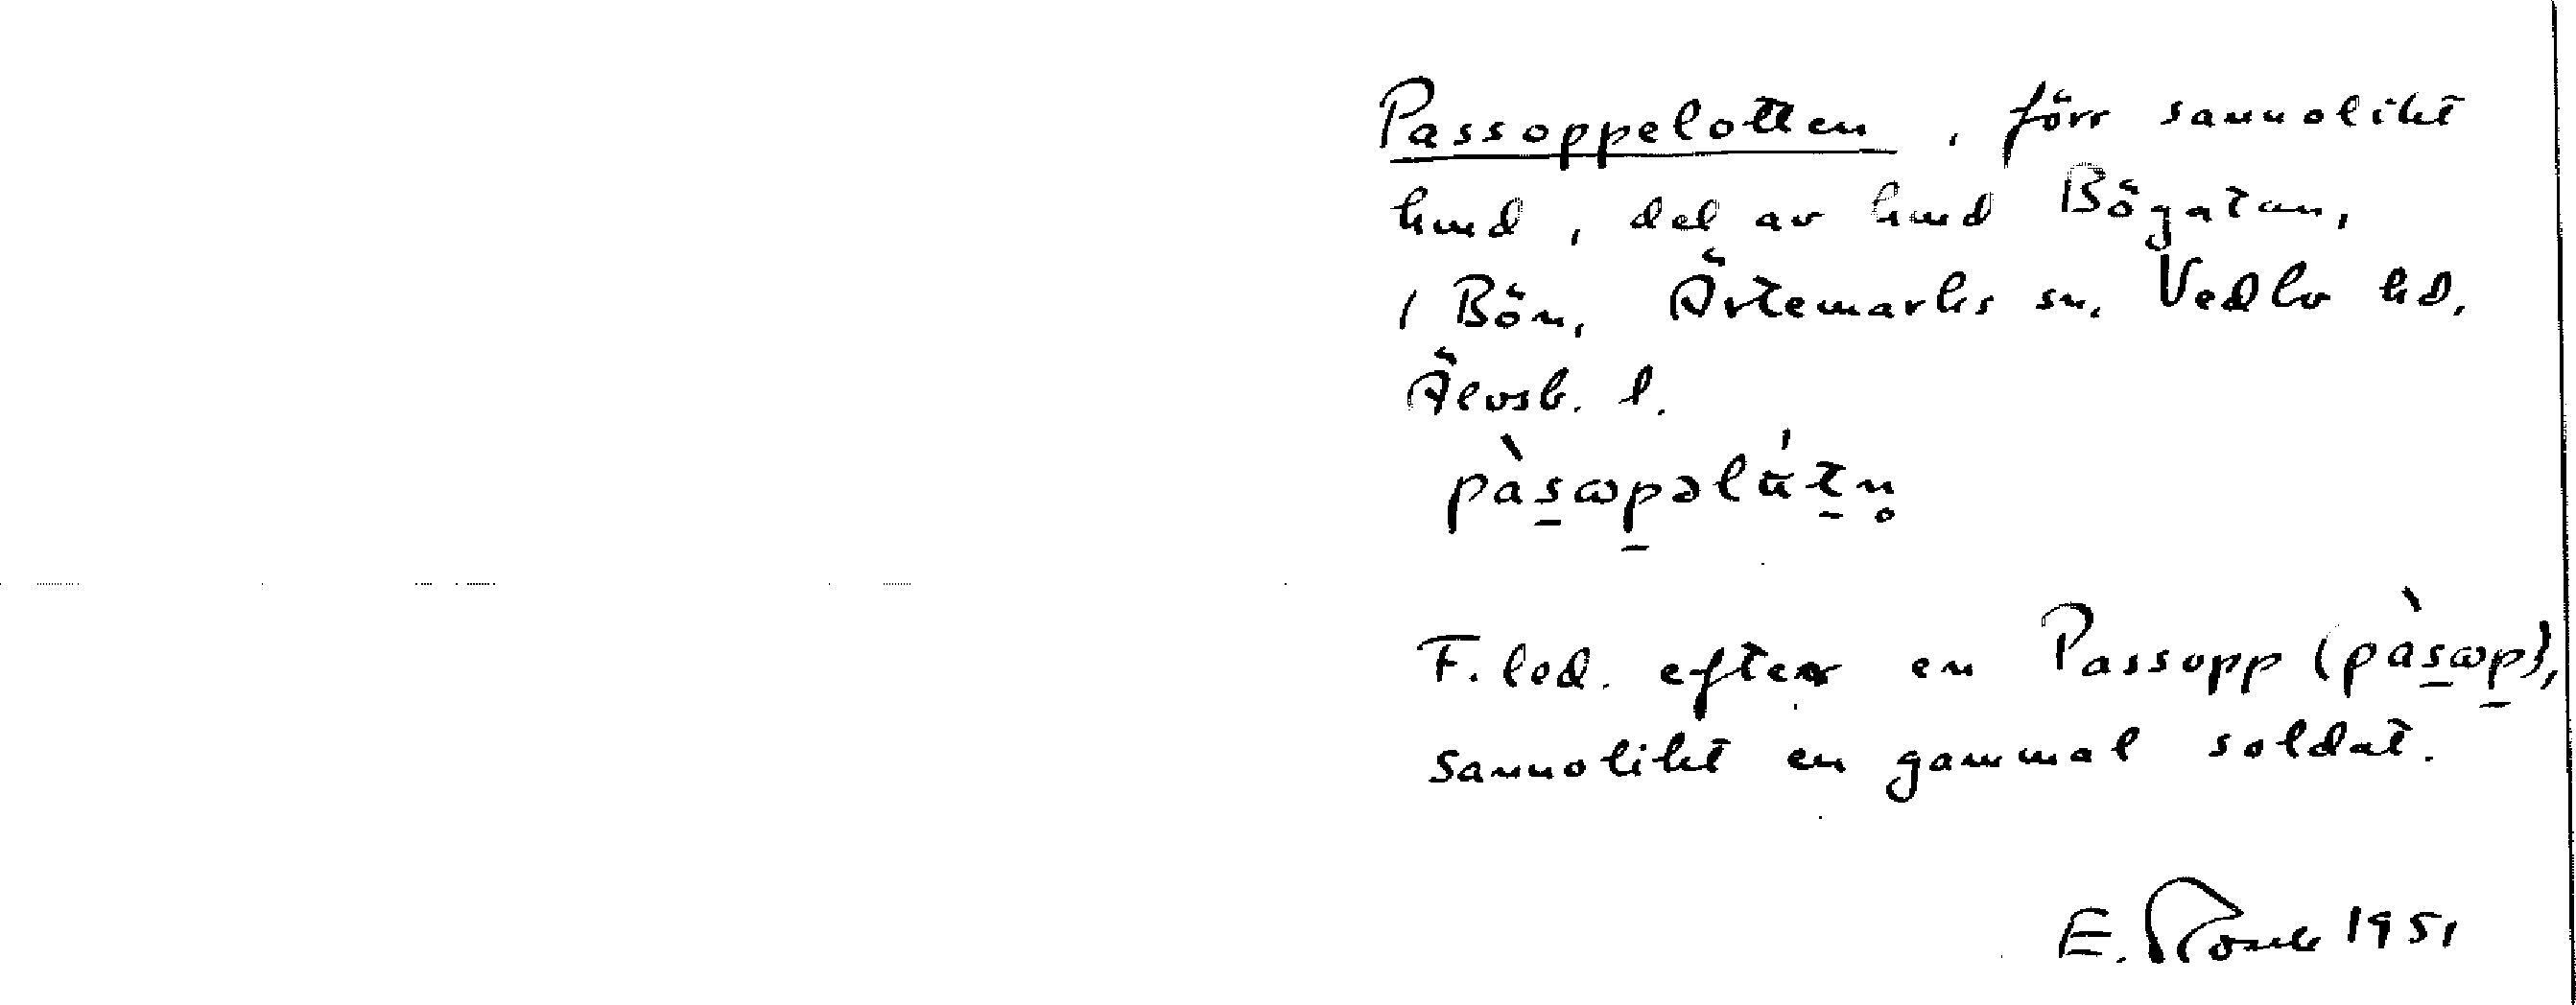 Passoppelotten, förr sannolikt
hmd, del av hmd Bögatan,
i Bön, Ärtemarks sn, Vedbo hd,
Älvsb. l.
pàsωpəlátn̥
F. led. efter en Passopp (pàsωp),
sannolikt en gammal soldat.
E. 1951